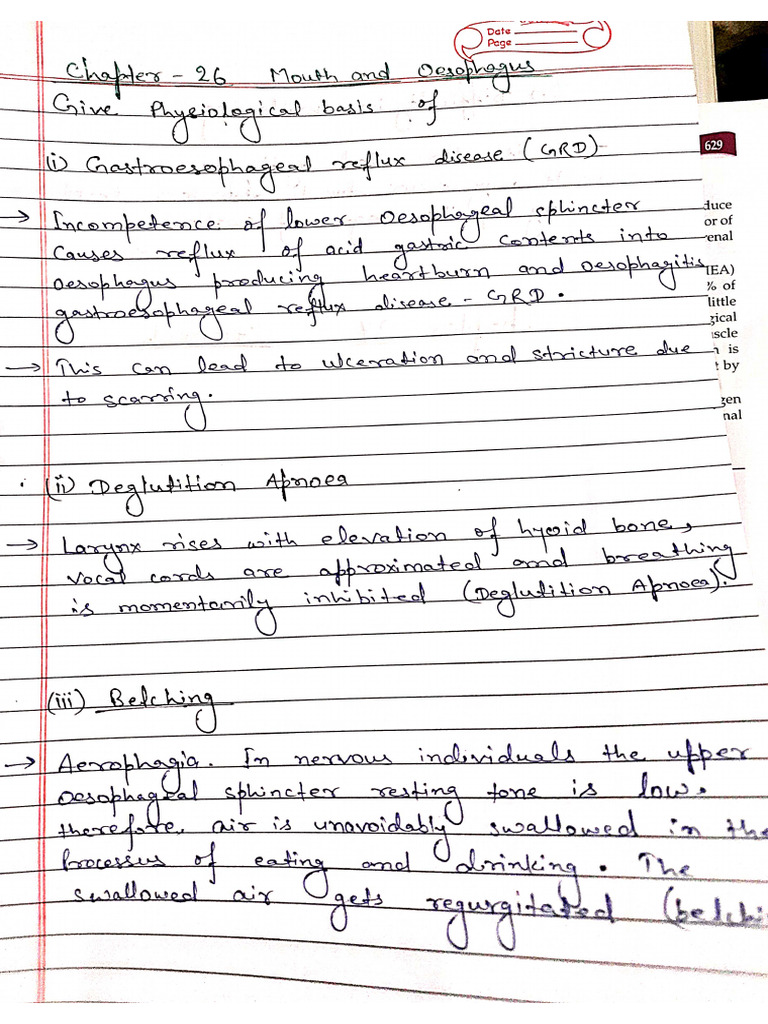 Date
Page
Chapter - 26 Mouth and Oesophagus
Give Physiological basis of
(i) Gastroesophageal reflux disease (GRD)
→ Incompetence of lower Oesophageal sphincter
causes reflux of acid gastric contents into
oesophagus producing heartburn and oesophagitis
gastroesophageal reflux disease - GRD.
→ This can lead to ulceration and stricture due
to scarring.
(ii) Deglutition Apnoea
→ Larynx rises with elevation of hyoid bone,
vocal cords are approximated and breathing
is momentarily inhibited (Deglutition Apnoea).
(iii) Belching
→ Aerophagia. In nervous individuals the upper
oesophageal sphincter resting tone is low.
therefore, air is unavoidably swallowed in the
processes of eating and drinking. The
swallowed air gets regurgitated (belchi
629
duce
or of
renal
(EA)
% of
little
gical
scle
is
t by
gen
nal